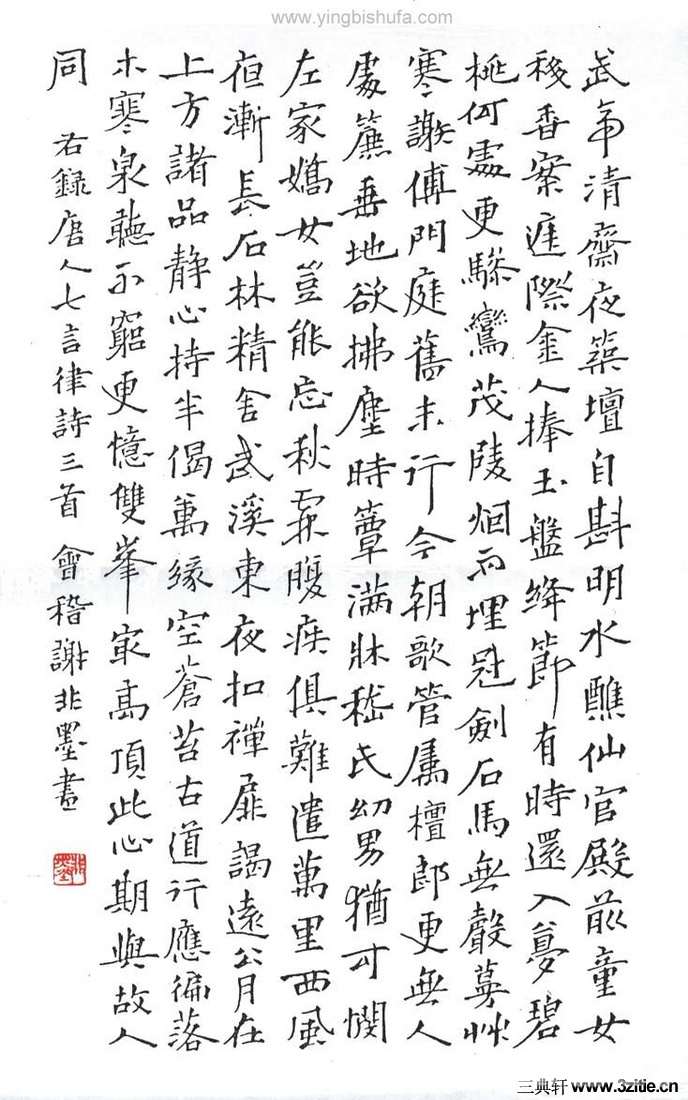 www.yingbishufa.com
武帝清齋夜築壇自斟明水醮仙官殿前童女
移香案際金人捧玉盤絳節有時還入夢碧
桃何處更驂鸞茂陵烟雨埋冠劍石馬無聲蔓草
寒謝傅門庭舊末行今朝歌管屬檀郎更無人
處簾垂地欲拂塵時簟滿牀嵇氏幼男猶可憫
左家嬌女豈能忘秋霖腹疾俱難遣萬里西風
夜漸長石林精舍武溪東夜扣禪扉謁遠公月在
上方諸品靜心持半偈萬緣空蒼苔古道行應徧落
木寒泉聽不窮更憶雙峯最高頂此心期與故人
同 右錄唐人七言律詩三首 會稽謝非墨書
三典轩 www.3zitie.cn